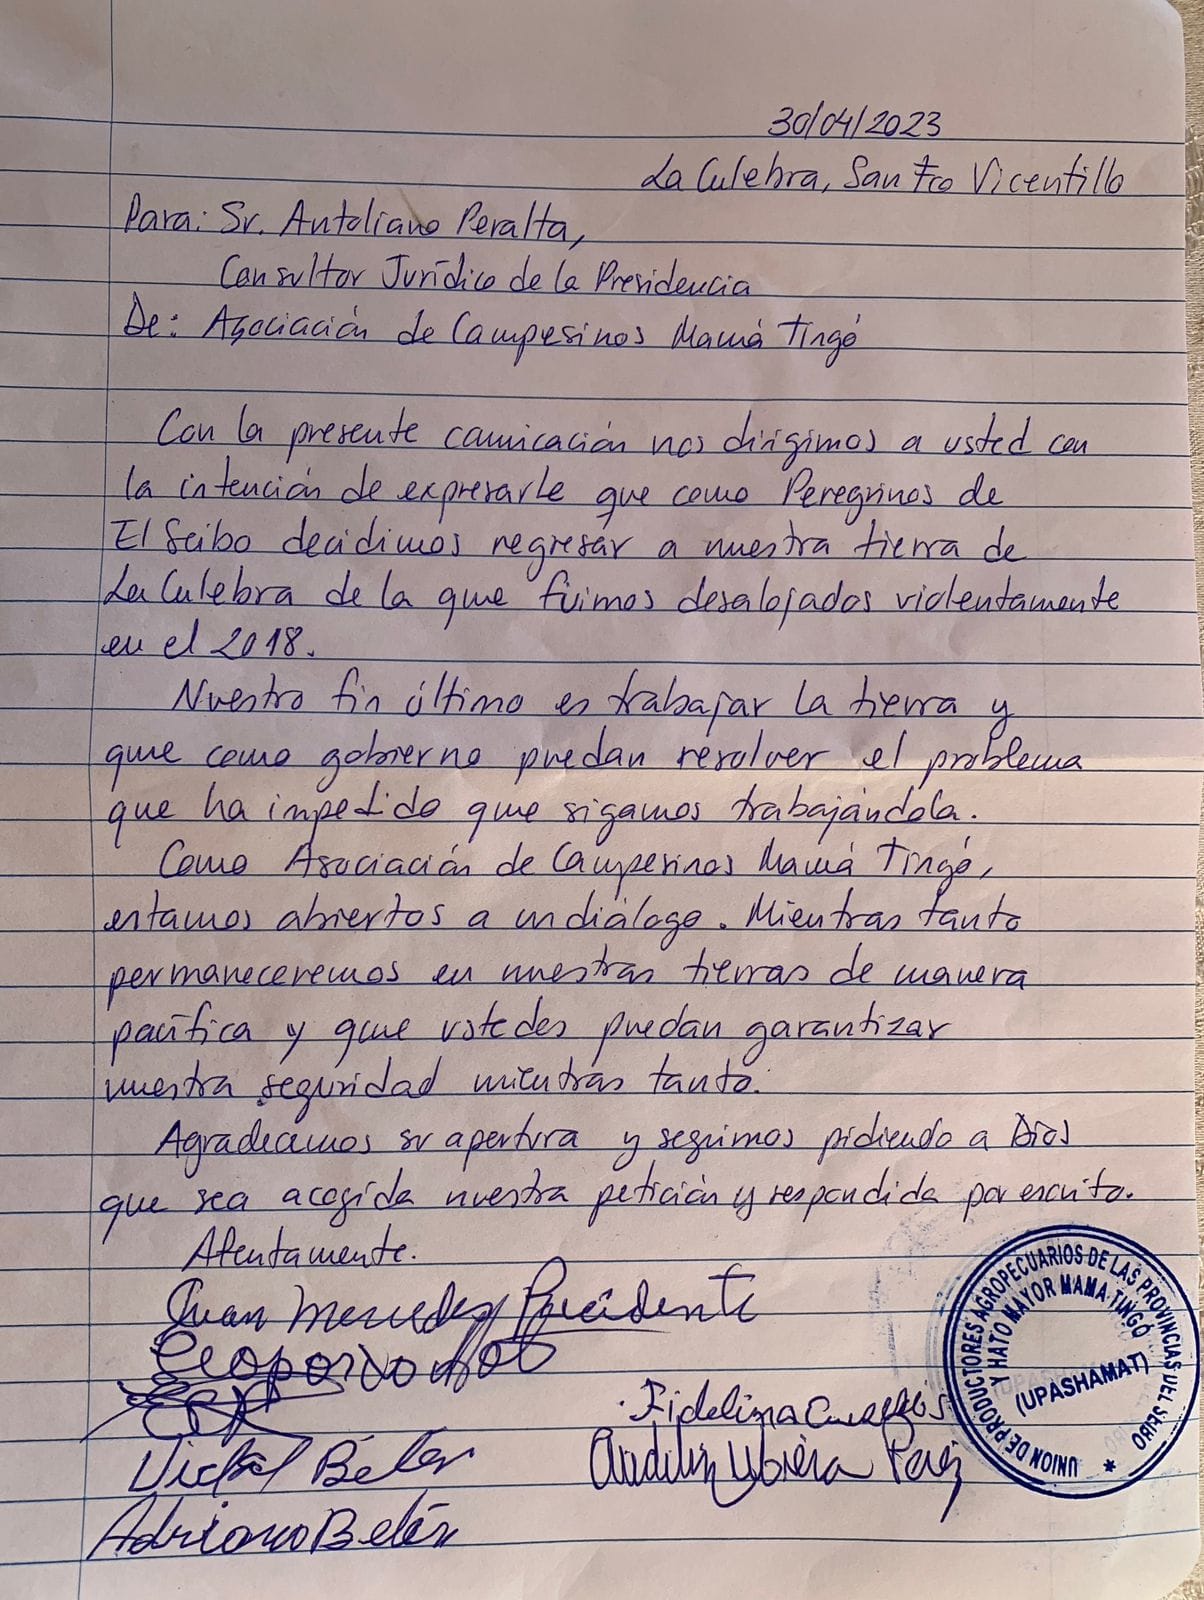 30/04/2023
La Culebra, San Fco Vicentillo
Para: Sr. Antoliano Peralta,
Consultor Jurídico de la Presidencia
De: Asociación de Campesinos Mamá Tingó
Con la presente comicación nos dirigimos a usted con
la intención de expresarle que como Peregrinos de
El Seibo decidimos regresar a nuestra tierra de
La Culebra de la que fuimos desalojados violentamente
en el 2018.
Nuestro fin último es trabajar la tierra y
que como gobierno puedan resolver el problema
que ha impedido que sigamos trabajándola.
Como Asociación de Campesinos Mamá Tingó,
estamos abiertos a un diálogo. Mientras tanto
permaneceremos en nuestras tierras de manera
pacífica y que ustedes puedan garantizar
nuestra seguridad mientras tanto.
Agradecemos su apertura y seguimos pidiendo a Dios
que sea acogida nuestra petición y respondida por escrito.
Atentamente.
Juan Mercedes
Fidelina
Ubiera Perez
Belen
Adriano Belén
UNION DE PRODUCTORES AGROPECUARIOS DE LAS PROVINCIAS DEL SEIBO
Y HATO MAYOR MAMA TINGÓ
(UPASHAMAT)